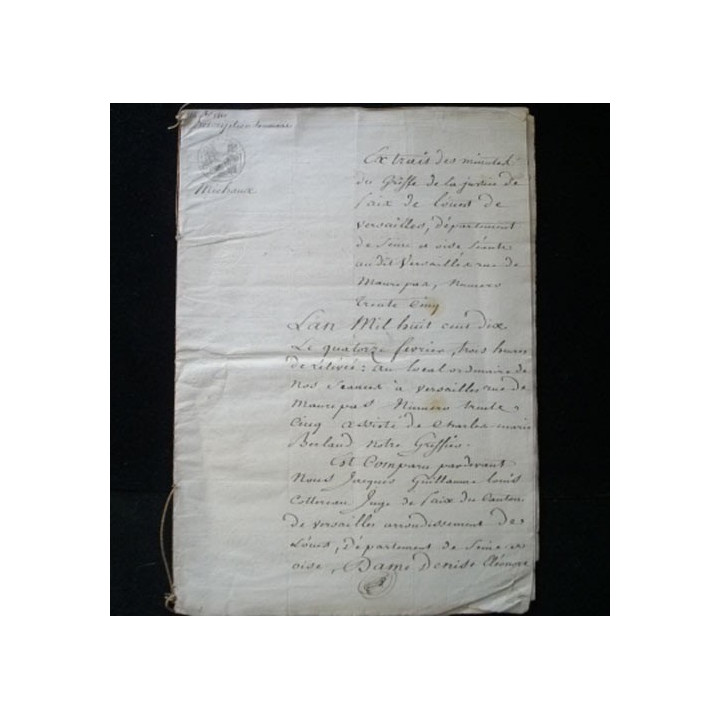 Inscription
Michaux
Extrait des minutes
du Greffe de la justice de
Paix de l'ouest de
Versailles, département
de Seine et oise Séante
audit Versailles rue de
Maurepas, Numero
trente Cinq
L'an Mil huit cent dix
Le quatorze fevrier, trois heures
de rélévée : au local ordinaire de
nos Séances à Versailles rue de
Maurepas Numero trente
Cinq assisté de Charles marie
notre Greffier.
Est Comparu pardevant
Nous Jacques Guillaume Louis
Cottereau Juge de Paix du Canton
de Versailles arrondissement de
L'ouest, Département de Seine et
oise, Dame Denise Eléonore